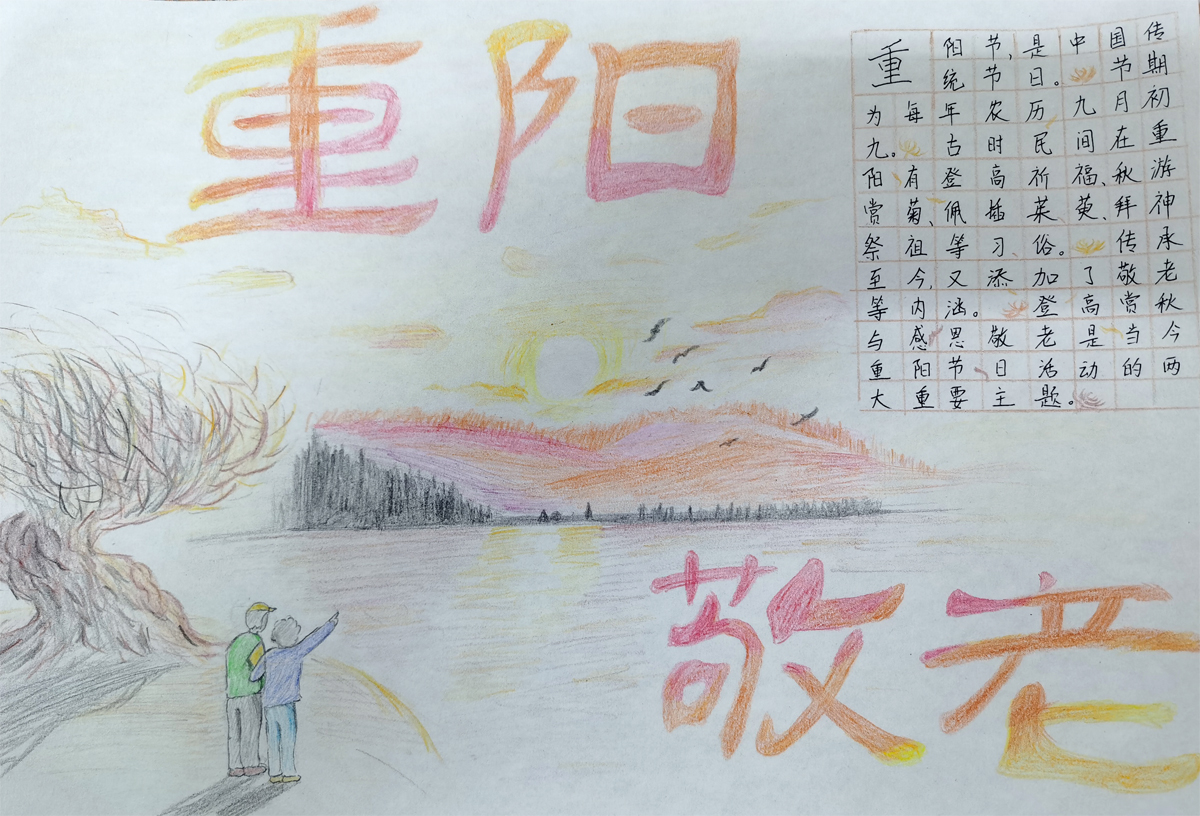 重阳
重阳节,是中国传
统节日。节期
为每年农历九月初
九。古时民间在重
阳有登高祈福、秋游
赏菊、佩插茱萸、拜神
祭祖等习俗。传承
至今,又添加了敬老
等内涵。登高赏秋
与感恩敬老是当今
重阳节日活动的两
大重要主题。
敬老